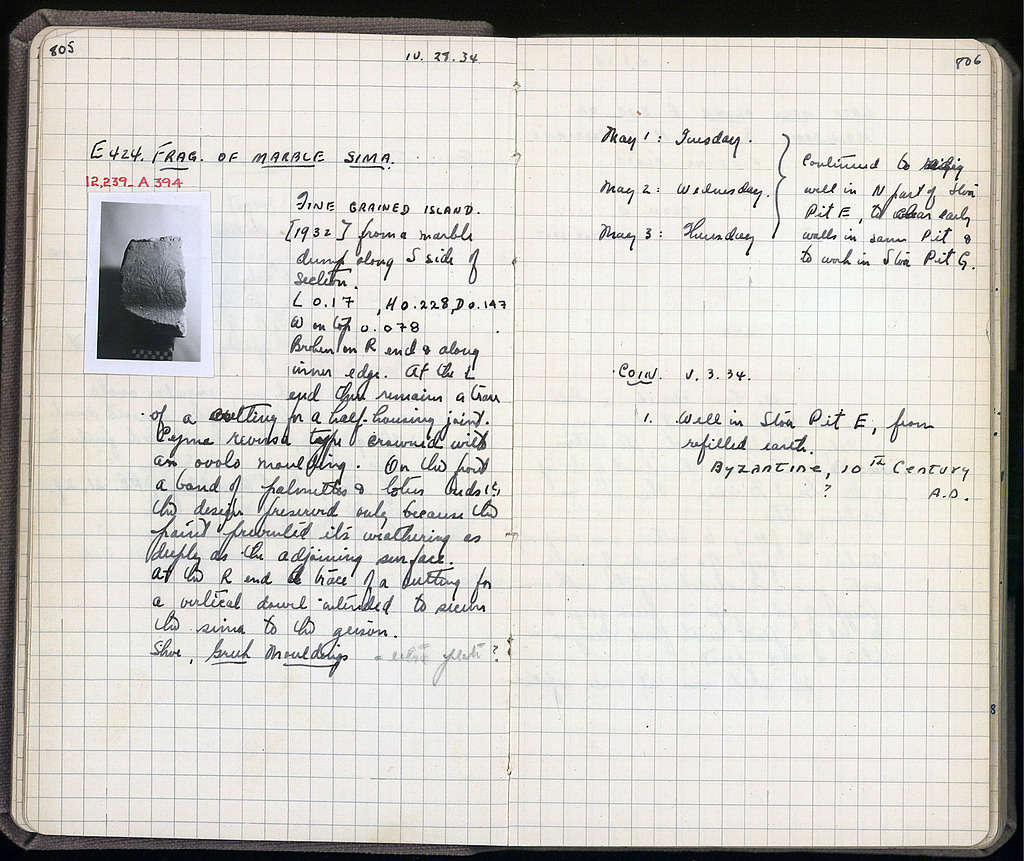 805
IV. 27. 34
E 424. FRAG. OF MARBLE SIMA.
12,239 - A 394
FINE GRAINED ISLAND.
[1932] from a marble
dump along S side of
Section.
L 0.17 , H 0.228, D 0.147
W on top 0.078
Broken on R end & along
inner edge. At the L
end there remains a trace
of a cutting for a half-housing joint.
Cyma reversa type crowned with
an ovolo moulding. On the front
a band of palmettes & lotus buds,
the design preserved only because the
paint prevented its weathering as
deeply as the adjoining surface.
At the R end a trace of a cutting for
a vertical dowel intended to secure
the sima to the geison.
Shoe, Greek Mouldings ?
806
May 1 : Tuesday.
May 2 : Wednesday.
May 3 : Thursday
Continued to dig
well in N part of Stoa
Pit E, to clear early
walls in same Pit &
to work in Stoa Pit G.
COIN. V. 3. 34.
1. Well in Stoa Pit E, from
refilled earth.
BYZANTINE, 10TH CENTURY
? A.D.
8